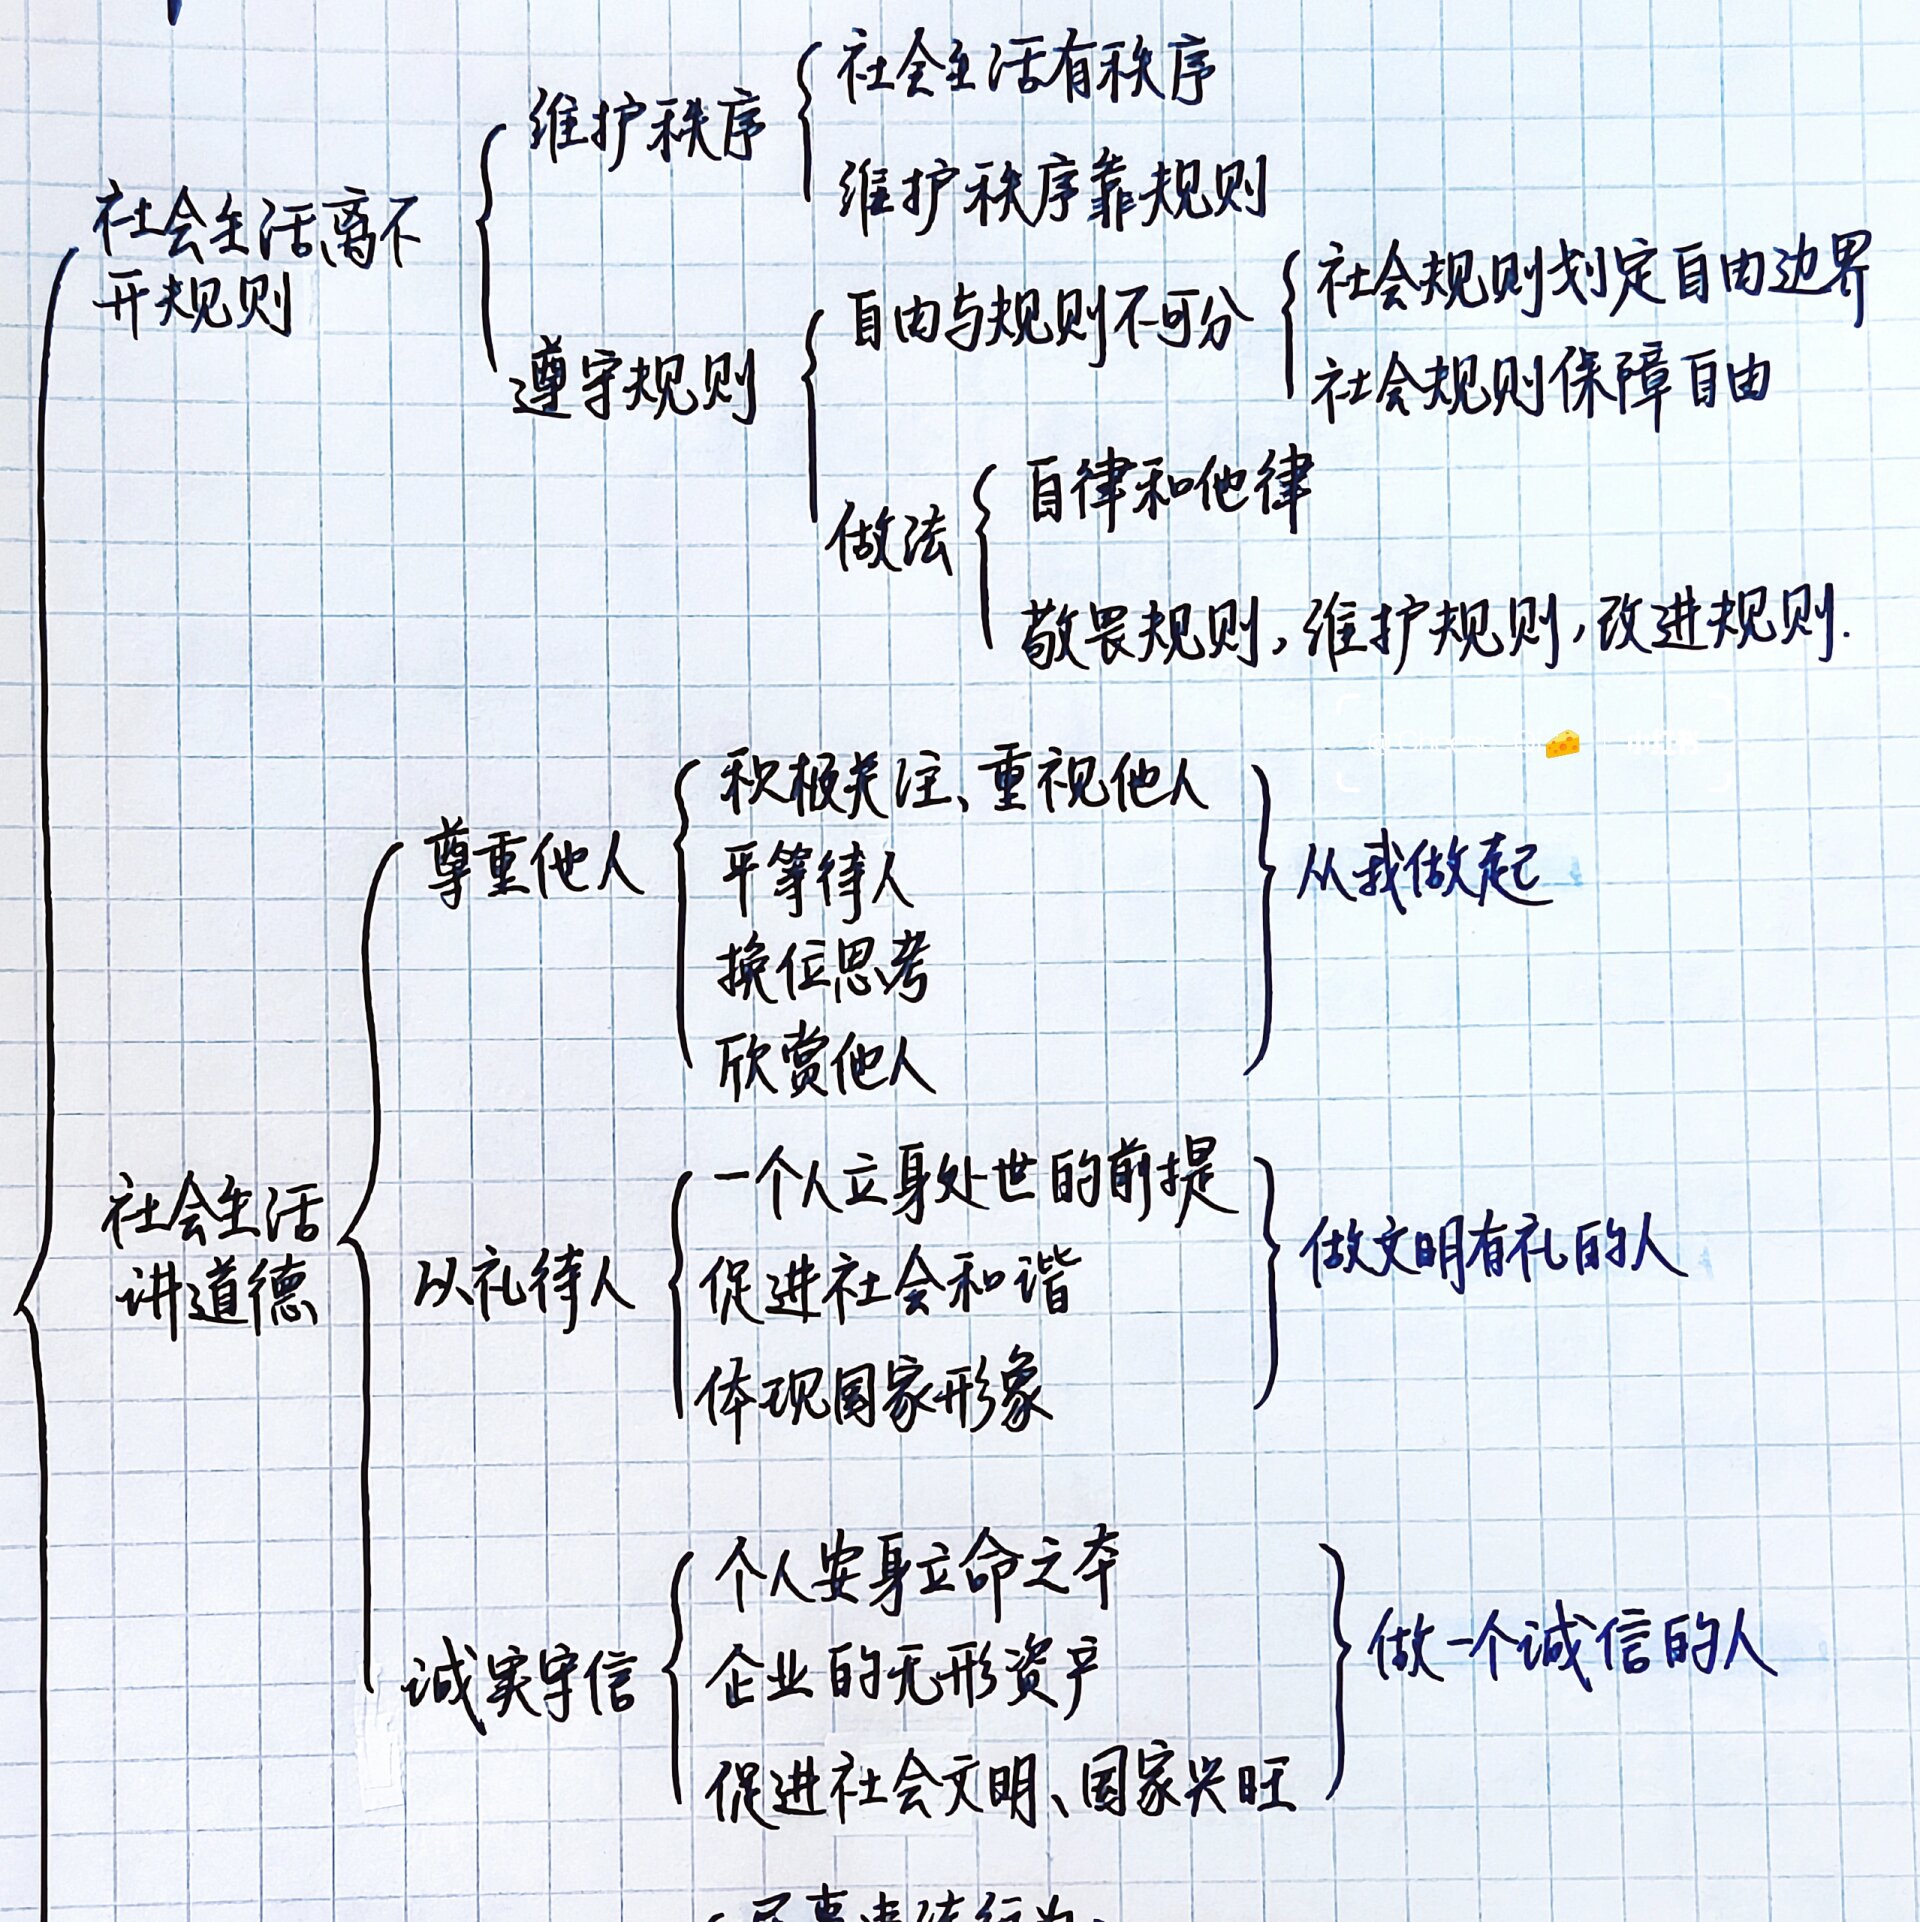 社会生活离不
开规则
维护秩序
社会生活有秩序
维护秩序靠规则
遵守规则
自由与规则不可分
社会规则划定自由边界
社会规则保障自由
做法
自律和他律
敬畏规则,维护规则,改进规则.
社会生活
讲道德
尊重他人
积极关注、重视他人
平等待人
换位思考
欣赏他人
从我做起
以礼待人
一个人立身处世的前提
促进社会和谐
体现国家形象
做文明有礼的人
诚实守信
个人安身立命之本
企业的无形资产
促进社会文明、国家兴旺
做一个诚信的人